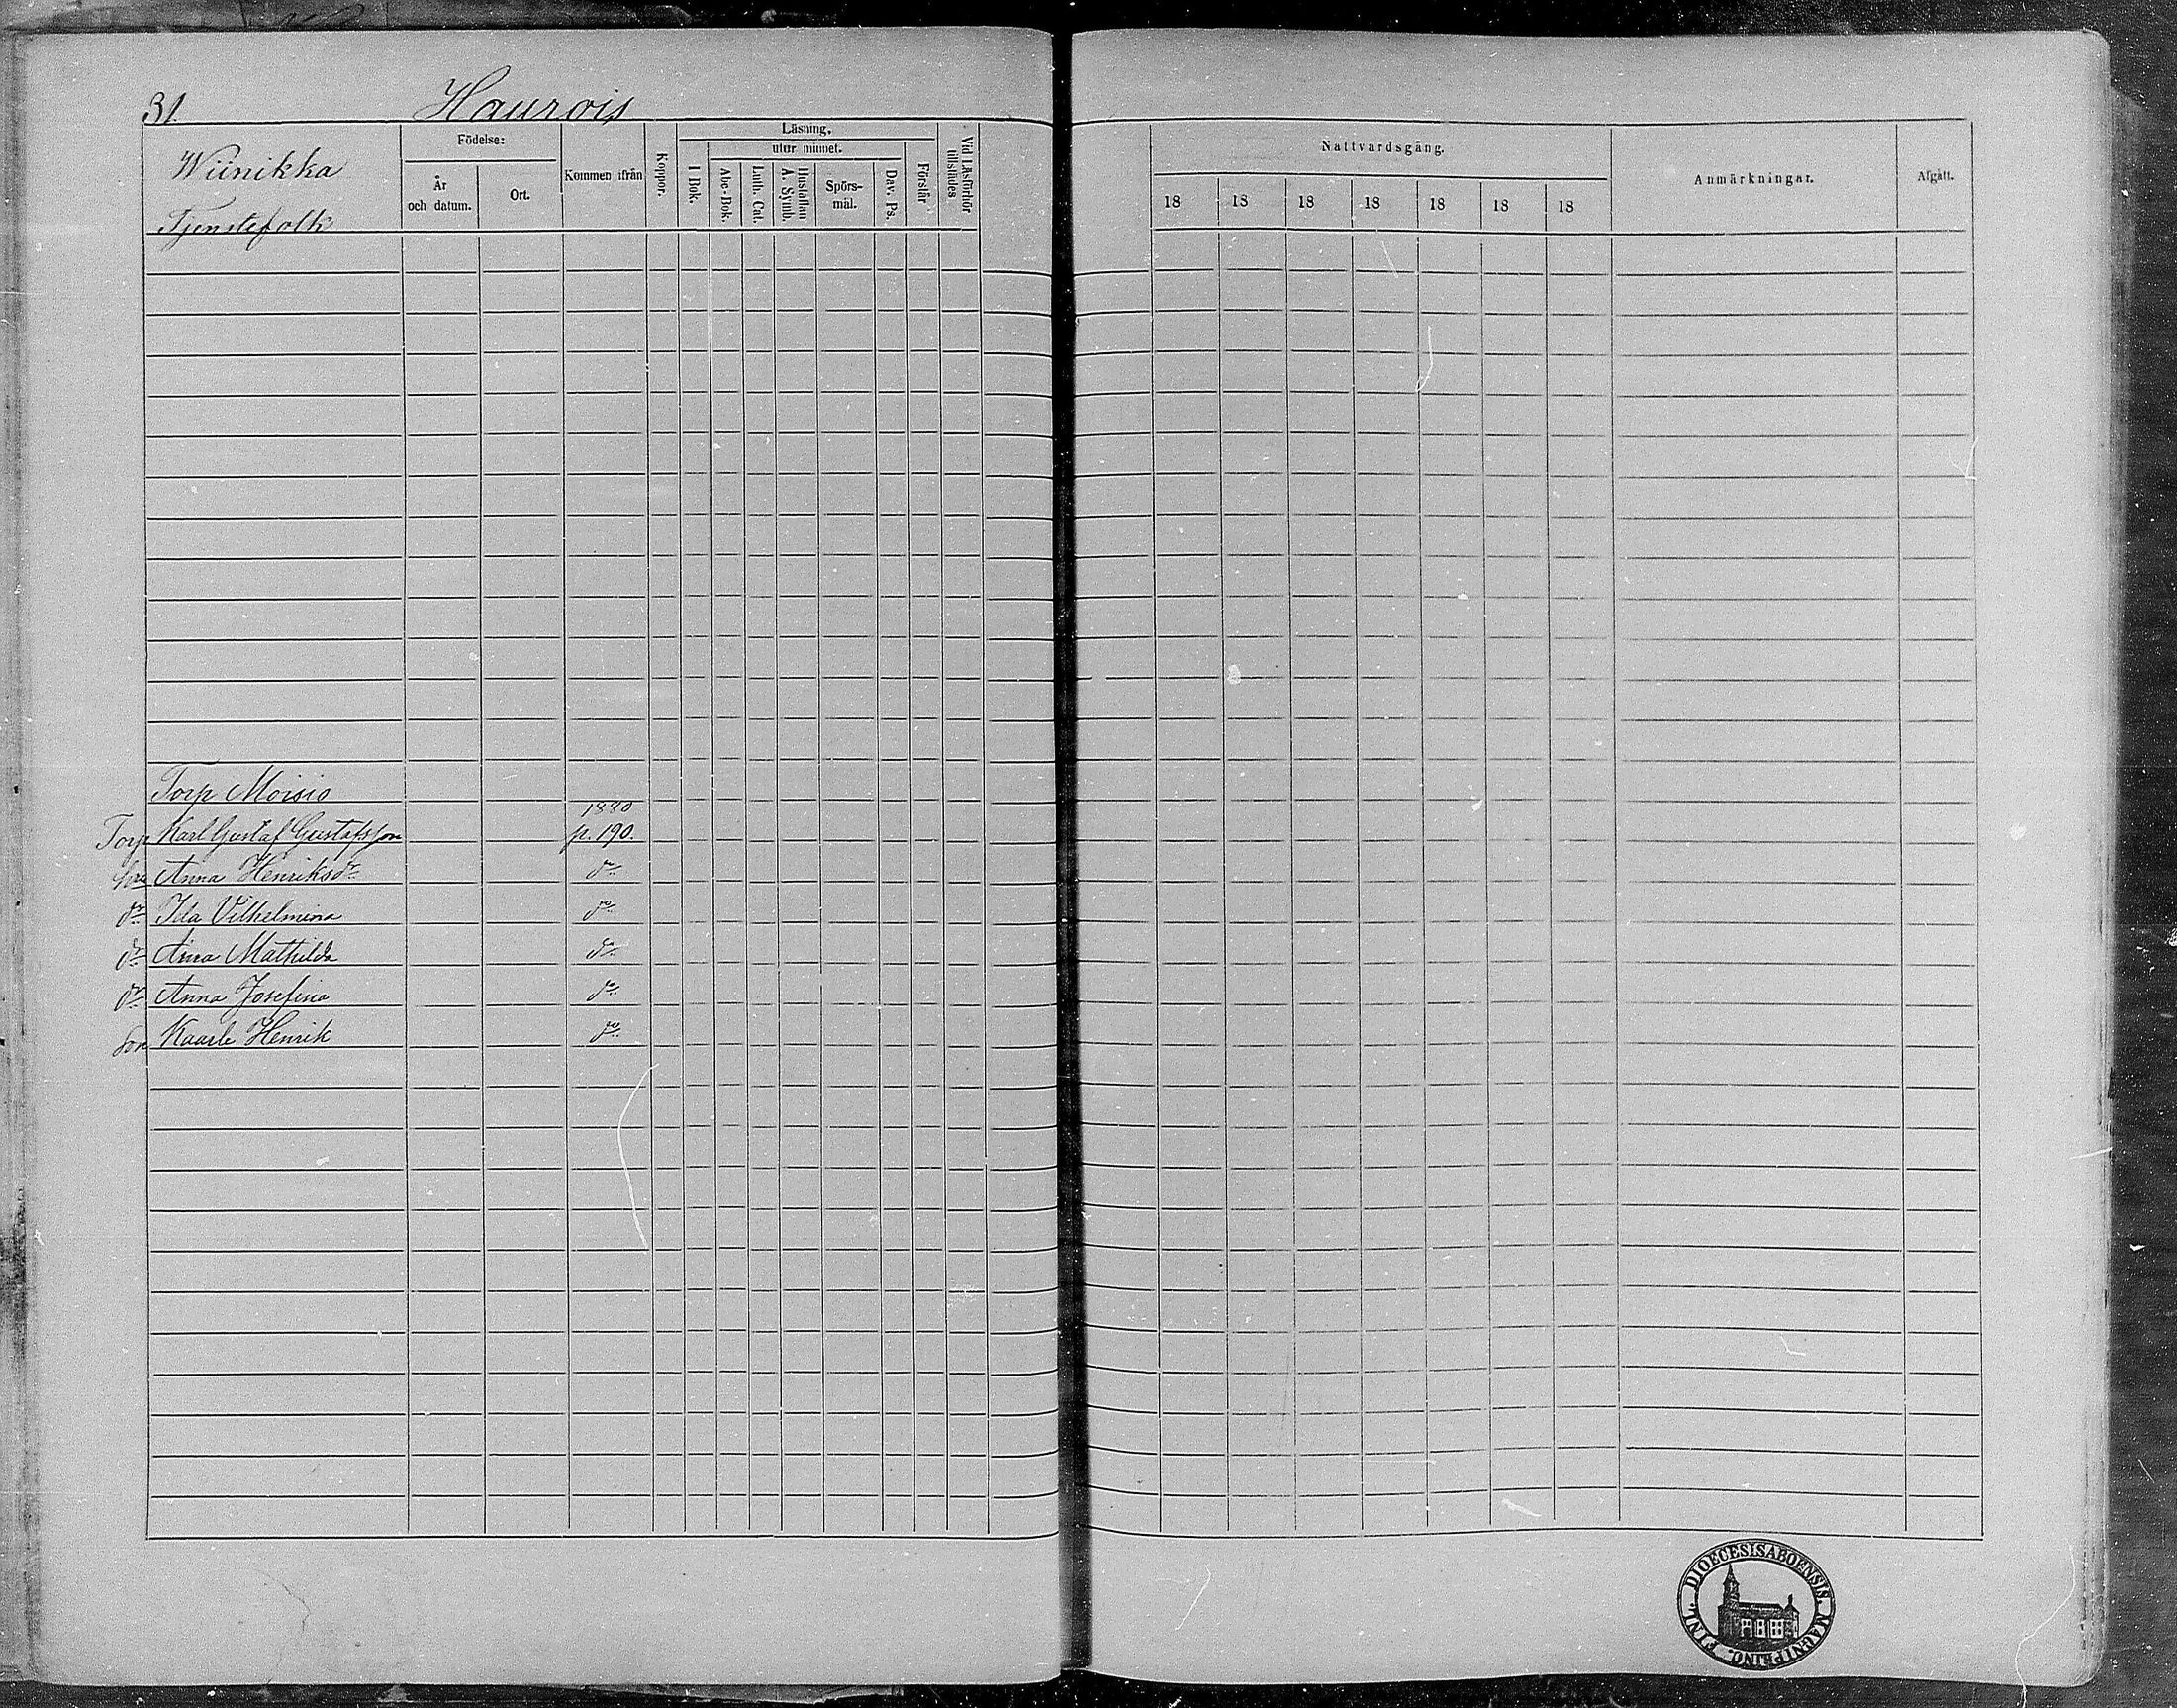 31.
Haurois
Wiinikka
Tjenstefolk
Födelse:
År
och datum.
Ort.
Kommen ifrån
Koppor.
Läsning.
utur minnet.
I Bok.
Abc-Bok.
Luth. Cat.
Hustaflan
A. Symb.
Spörs-
mål.
Dav. Ps.
Förstår
Vid Läsförhör
tillstädes
Nattvardsgång.
18 18 18 18 18 18 18
Anmärkningar.
Afgått.
Torp Moisio
1880
Torp Karl Gustaf Gustafsson p. 190.
Anna Henriksdr do
dr Ida Vilhelmina do
dr Mathilda do
dr Anna Josefina do
son Kaarle Henrik do
DIOECESIS ABOENSIS. MAGNI PRINC. FINL.